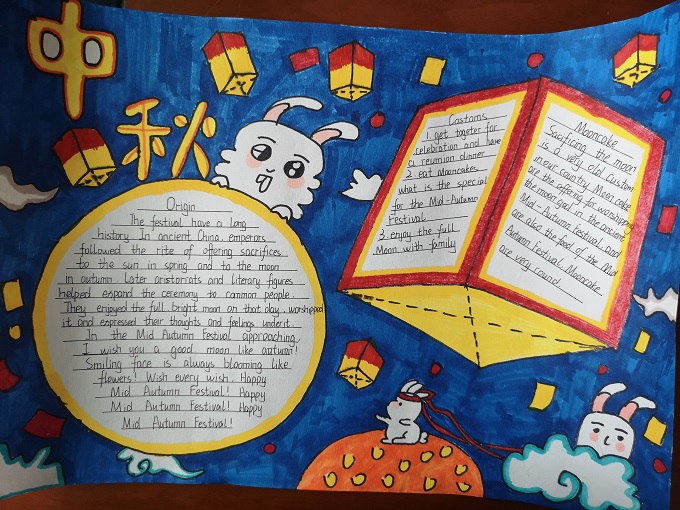 中
秋
Origin
The festival have a long
history. In ancient China emperors
followed the rite of offering sacrifices
to the sun in spring and to the moon
in autumn. Later aristorrats and literary figures
helped expand the ceremony to common people.
They enjoyed the full. bright moon on that day. worshipped
it and expressed their thoughts and feelings underit.
In the Mid Autumn Festival approaching.
I wish you a good moon like autumn!
Smiling face is always blooming like
flowers! Wish every wish. Happy
Mid Autumn Festival! Happy
Mid Autumn Festival! Happy
Mid Autumn Festival!
Costoms
1. get togeter for
celebration and have
a reunion dinner
2. eat Mooncakes.
what is the special
for the Mid-Autumn
Festival
3. enjoy the full
Moon with family
Mooncake
Sacrificing the moon
is a very old custom
in our country. Mooncake
are the offering for worshipping
the moon god in the ancient
Mid-Autumn Festival. and
are also the food of the Mid
Autumn Festival. Mooncake
are very round.